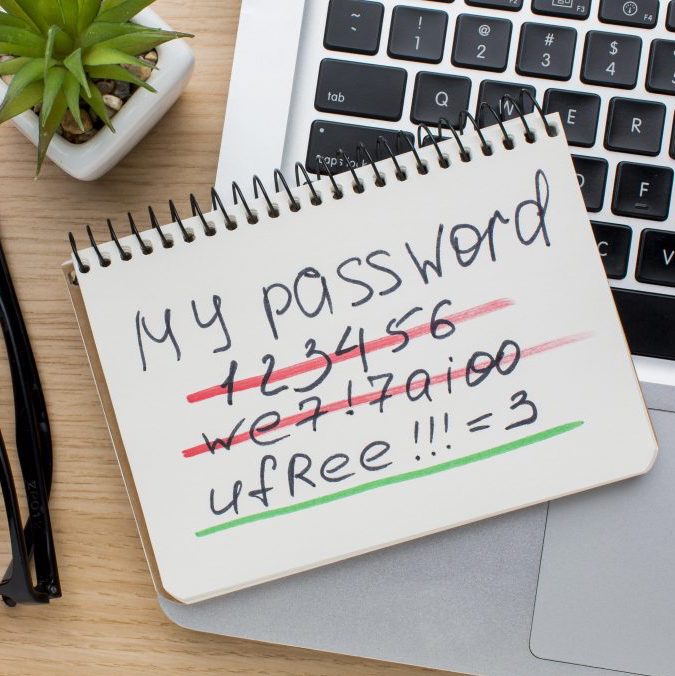 ~ `
! 1
@ 2
# 3
$ 4
F3
tab
Q
W
E
R
caps lock
F
C
V
My password
123456
we7!7aioo
ufRee!!!=3